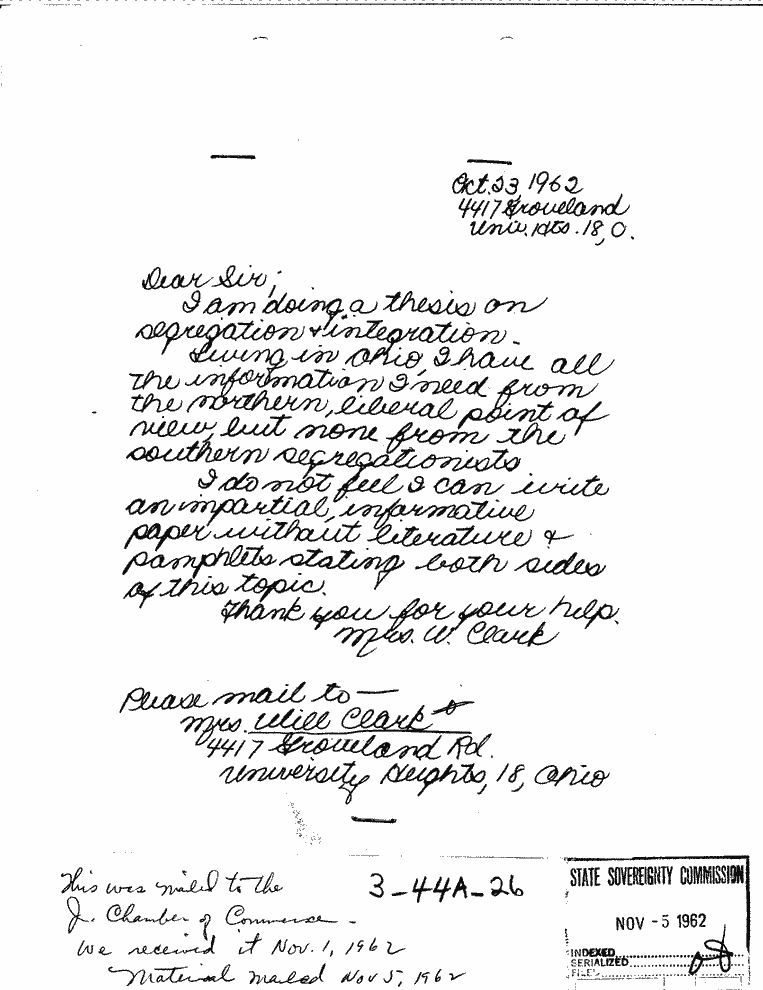 Oct. 23, 1962
4417 Groveland
Univ. Hts. 18, O.
Dear Sir;
I am doing a thesis on
segregation & integration.
Living in Ohio, I have all
the information I need from
the northern, liberal point of
view, but none from the
southern segregationists
I do not feel I can write
an impartial, informative
paper without literature &
pamphlets stating both sides
of this topic.
Thank you for your help.
Mrs. W. Clark
Please mail to —
Mrs. Will Clark
4417 Groveland Rd.
University Heights, 18, Ohio
This was mailed to the
J. Chamber of Commerce -
We received it Nov. 1, 1962
Material mailed Nov 5, 1962
3-44A-26
STATE SOVEREIGNTY COMMISSION
NOV - 5 1962
INDEXED
SERIALIZED
FILED